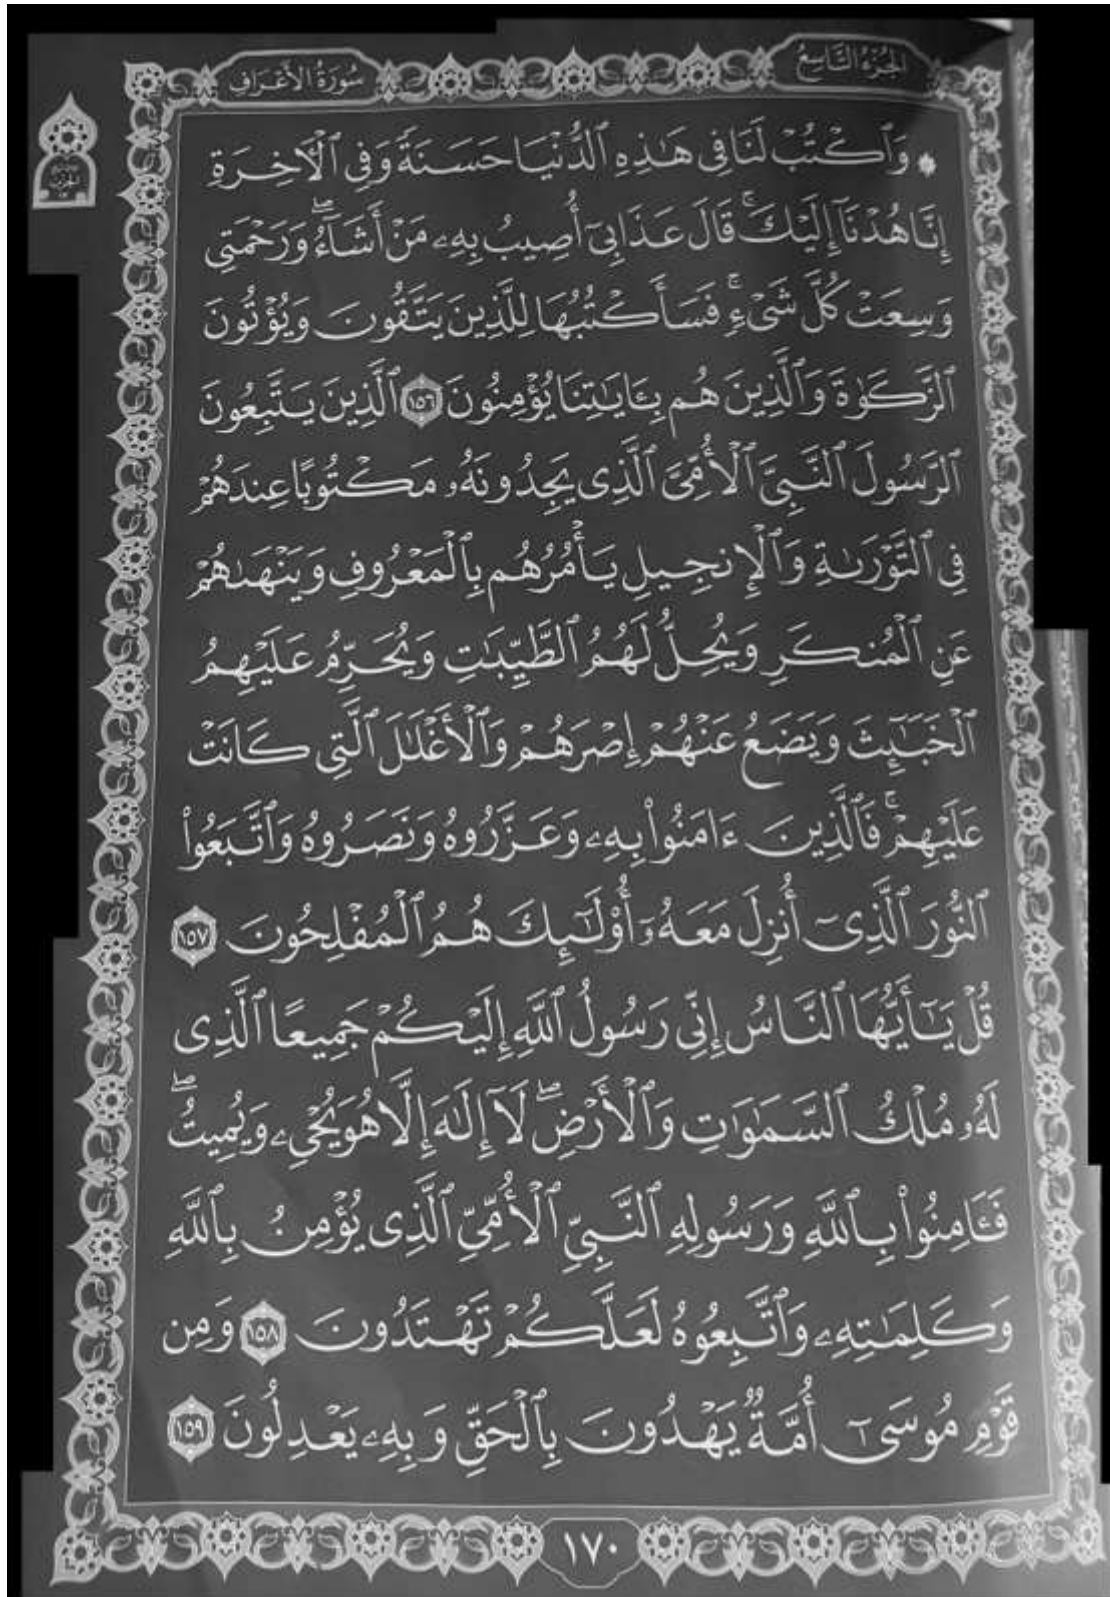 الجزء التاسع
سورة الأعراف
۞ وَٱكۡتُبۡ لَنَا فِي هَٰذِهِ ٱلدُّنۡيَا حَسَنَةٗ وَفِي ٱلۡأٓخِرَةِ
إِنَّا هُدۡنَآ إِلَيۡكَۚ قَالَ عَذَابِيٓ أُصِيبُ بِهِۦ مَنۡ أَشَآءُۖ وَرَحۡمَتِي
وَسِعَتۡ كُلَّ شَيۡءٖۚ فَسَأَكۡتُبُهَا لِلَّذِينَ يَتَّقُونَ وَيُؤۡتُونَ
ٱلزَّكَوٰةَ وَٱلَّذِينَ هُم بِـَٔايَٰتِنَا يُؤۡمِنُونَ ١٥٦ ٱلَّذِينَ يَتَّبِعُونَ
ٱلرَّسُولَ ٱلنَّبِيَّ ٱلۡأُمِّيَّ ٱلَّذِي يَجِدُونَهُۥ مَكۡتُوبًا عِندَهُمۡ
فِي ٱلتَّوۡرَىٰةِ وَٱلۡإِنجِيلِ يَأۡمُرُهُم بِٱلۡمَعۡرُوفِ وَيَنۡهَىٰهُمۡ
عَنِ ٱلۡمُنكَرِ وَيُحِلُّ لَهُمُ ٱلطَّيِّبَٰتِ وَيُحَرِّمُ عَلَيۡهِمُ
ٱلۡخَبَٰٓئِثَ وَيَضَعُ عَنۡهُمۡ إِصۡرَهُمۡ وَٱلۡأَغۡلَٰلَ ٱلَّتِي كَانَتۡ
عَلَيۡهِمۡۚ فَٱلَّذِينَ ءَامَنُواْ بِهِۦ وَعَزَّرُوهُ وَنَصَرُوهُ وَٱتَّبَعُواْ
ٱلنُّورَ ٱلَّذِيٓ أُنزِلَ مَعَهُۥٓ أُوْلَٰٓئِكَ هُمُ ٱلۡمُفۡلِحُونَ ١٥٧
قُلۡ يَٰٓأَيُّهَا ٱلنَّاسُ إِنِّي رَسُولُ ٱللَّهِ إِلَيۡكُمۡ جَمِيعًا ٱلَّذِي
لَهُۥ مُلۡكُ ٱلسَّمَٰوَٰتِ وَٱلۡأَرۡضِۖ لَآ إِلَٰهَ إِلَّا هُوَ يُحۡيِۦ وَيُمِيتُۖ
فَـَٔامِنُواْ بِٱللَّهِ وَرَسُولِهِ ٱلنَّبِيِّ ٱلۡأُمِّيِّ ٱلَّذِي يُؤۡمِنُ بِٱللَّهِ
وَكَلِمَٰتِهِۦ وَٱتَّبِعُوهُ لَعَلَّكُمۡ تَهۡتَدُونَ ١٥٨ وَمِن
قَوۡمِ مُوسَىٰٓ أُمَّةٞ يَهۡدُونَ بِٱلۡحَقِّ وَبِهِۦ يَعۡدِلُونَ ١٥٩
١٧٠